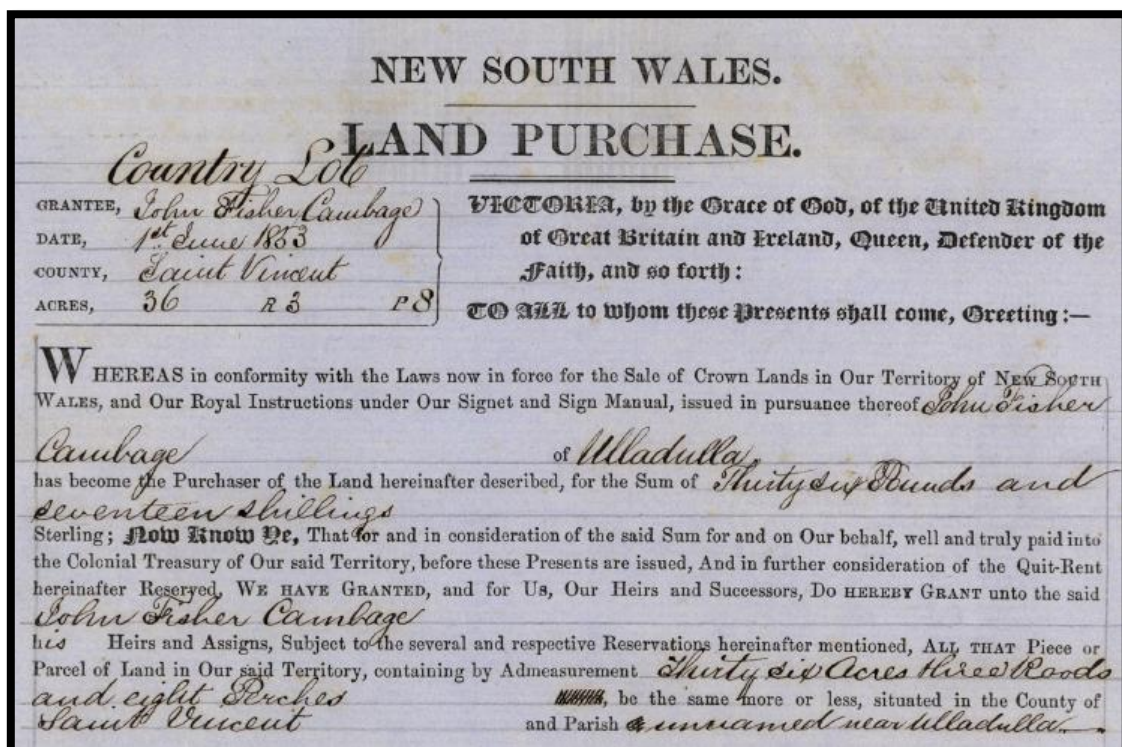 NEW SOUTH WALES.
LAND PURCHASE.
Country Lot
GRANTEE, John Fisher Cambage
DATE, 1st June 1853
COUNTY, Saint Vincent
ACRES, 36 R 3 P 8
VICTORIA, by the Grace of God, of the United Kingdom
of Great Britain and Ireland, Queen, Defender of the
Faith, and so forth:
TO ALL to whom these Presents shall come, Greeting:—
WHEREAS in conformity with the Laws now in force for the Sale of Crown Lands in Our Territory of NEW SOUTH
WALES, and Our Royal Instructions under Our Signet and Sign Manual, issued in pursuance thereof John Fisher
Cambage of Ulladulla
has become the Purchaser of the Land hereinafter described, for the Sum of Thirty six Pounds and
seventeen shillings
Sterling; Now Know Ye, That for and in consideration of the said Sum for and on Our behalf, well and truly paid into
the Colonial Treasury of Our said Territory, before these Presents are issued, And in further consideration of the Quit-Rent
hereinafter Reserved, WE HAVE GRANTED, and for Us, Our Heirs and Successors, DO HEREBY GRANT unto the said
John Fisher Cambage
his Heirs and Assigns, Subject to the several and respective Reservations hereinafter mentioned, ALL THAT Piece or
Parcel of Land in Our said Territory, containing by Admeasurement Thirty six Acres three Roods
and eight Perches , be the same more or less, situated in the County of
Saint Vincent and Parish unnamed near Ulladulla